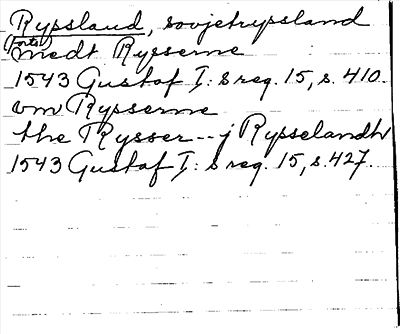 Rypsland, sovjetrypsland
(forts)
medt Rysserne
1543 Gustaf I: s reg. 15, s. 410.
om Rysserne
the Rysser -- j Rysselandh
1543 Gustaf I: s reg. 15, s. 427.